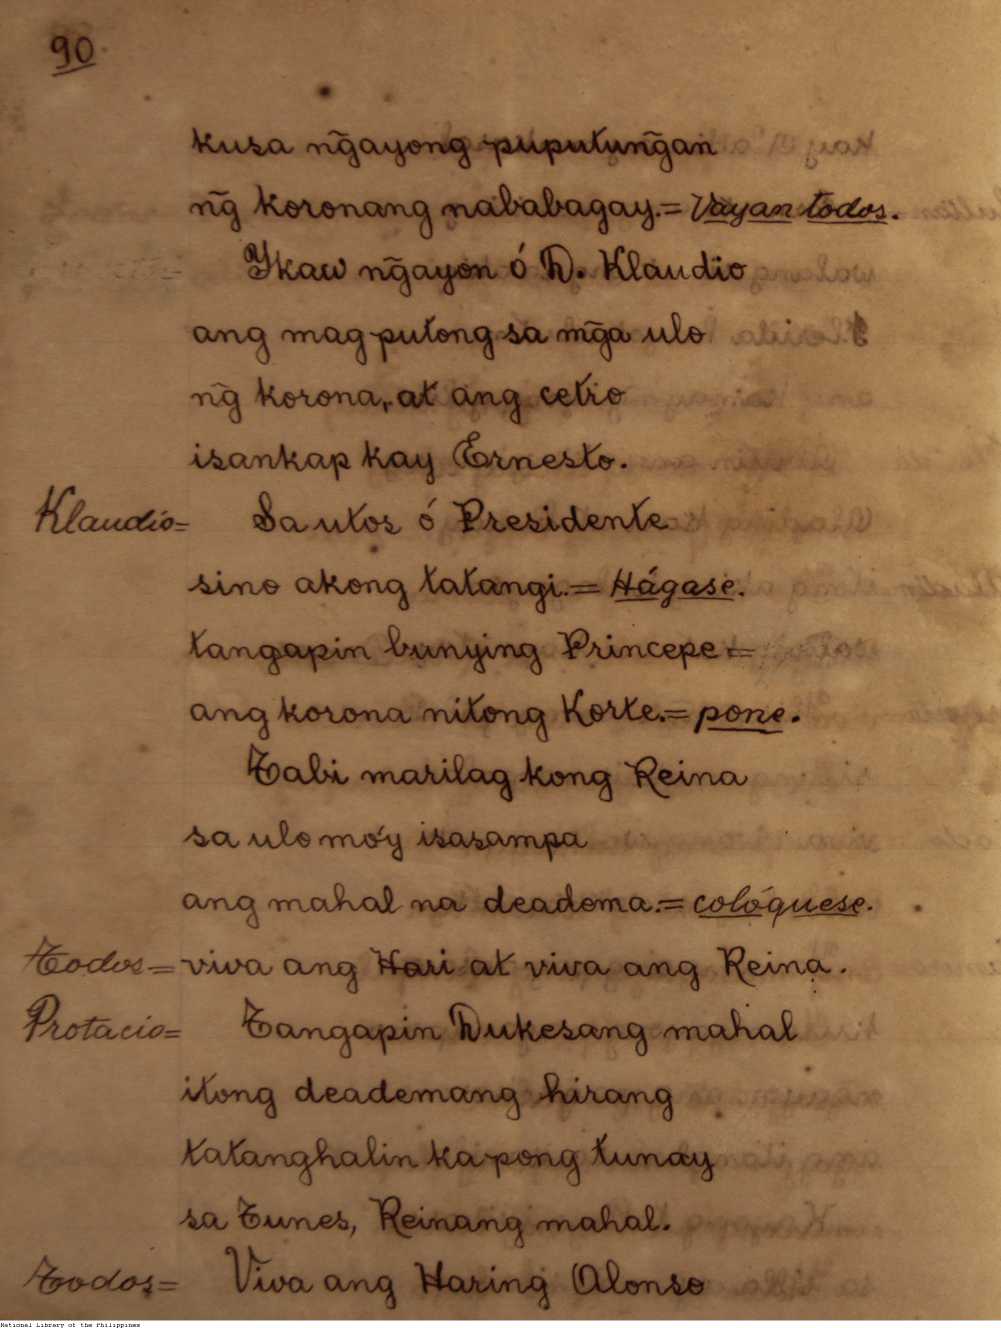 90
kusa ng̃ayong puputung̃an
ng̃ koronang nababagay.= Vayan todos.
Ykaw ng̃ayon ó D. Klaudio
ang mag putong sa mg̃a ulo
ng̃ korona, at ang cetro
isankap kay Ernesto.
Klaudio= Sa utos ó Presidente
sino akong tatangi.= Hágase.
tangapin bunying Princepe =
ang korona nitong Korte.= pone.
Tabi marilag kong Reina
sa ulo mo'y isasampa
ang mahal na deadema.= colóquese.
Todos= viva ang Hari at viva ang Reina.
Protacio= Tangapin Dukesang mahal
itong deademang hirang
tatanghalin ka pong tunay
sa Tunes, Reinang mahal.
Todos= Viva ang Haring Alonso
National Library of the Philippines